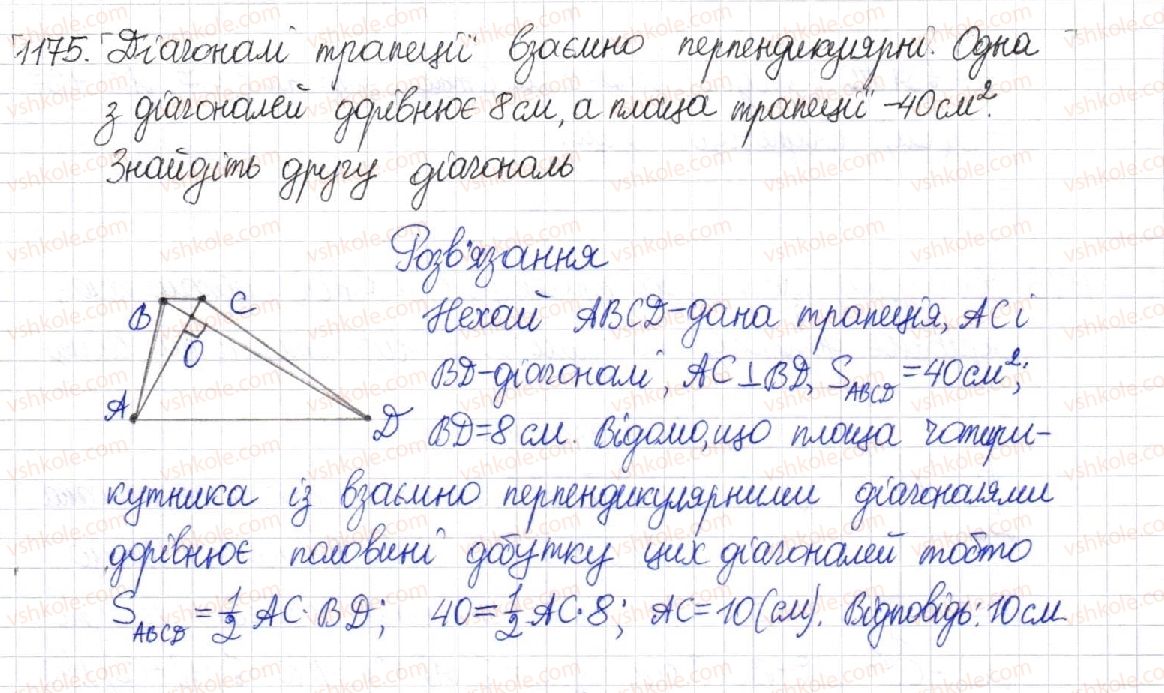 1175. Діагоналі трапеції взаємно перпендикулярні. Одна
з діагоналей дорівнює 8 см, а площа трапеції - 40 см².
Знайдіть другу діагональ
Розв'язання
B C
O
A D
Нехай ABCD - дана трапеція, AC і
BD - діагоналі, AC ⊥ BD, S_ABCD = 40 см²;
BD = 8 см. Відомо, що площа чотири-
кутника із взаємно перпендикулярними діагоналями
дорівнює половині добутку цих діагоналей тобто
S_ABCD = 1/2 AC · BD; 40 = 1/2 AC · 8; AC = 10 (см). Відповідь: 10 см.